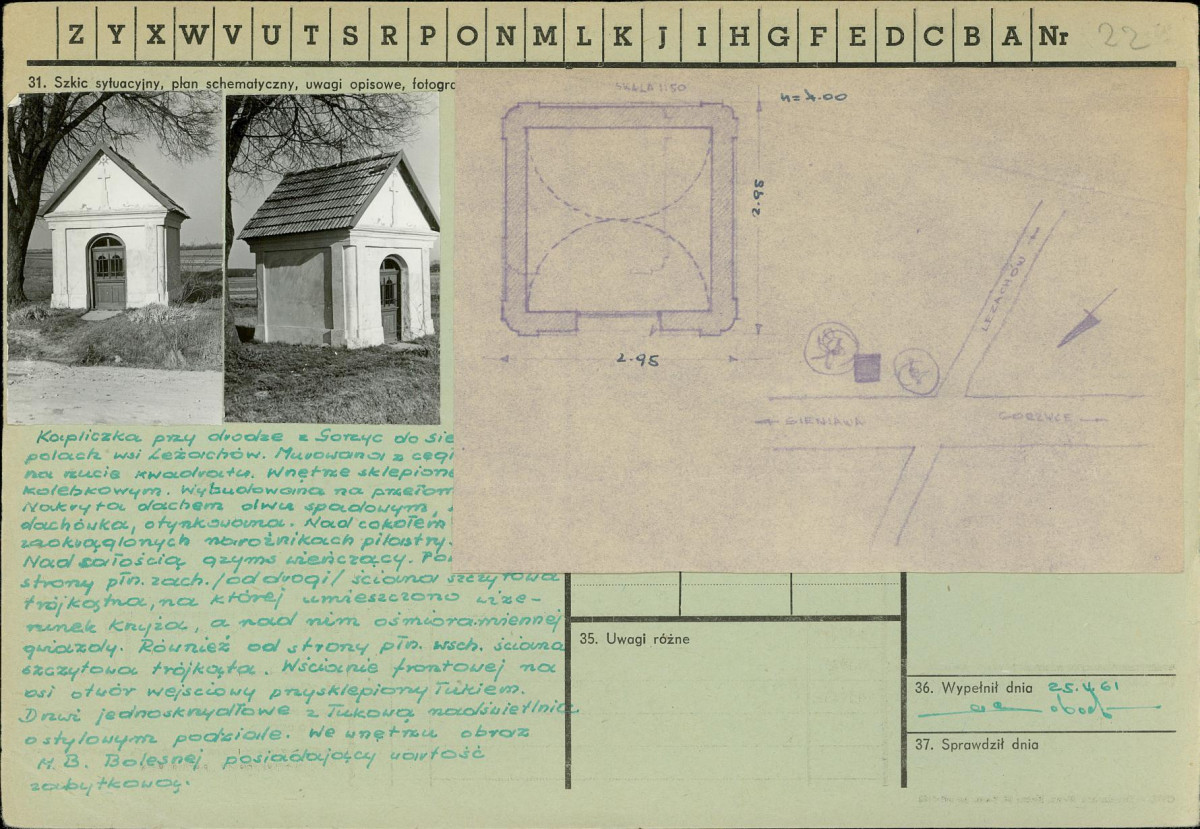 Z Y X W V U T S R P O N M L K J I H G F E D C B A Nr 22
31. Szkic sytuacyjny, plan schematyczny, uwagi opisowe, fotogra
SKALA 1:50
H=4.00
2.95
2.95
LEŻACHÓW
SIENIAWA
GORZYCE
Kapliczka przy drodze z Gorzyc do Sie
polach wsi Leżachów. Murowana z cegi
na rzucie kwadratu. Wnętrze sklepione
kolebkowym. Wybudowana na przełom
Nakryta dachem dwu spadowym,
dachówka, otynkowana. Nad cokołem
zaokrąglonych narożnikach pilastry.
Nad całością gzyms wieńczący. Po
strony płn. zach. /od drogi/ ściana szczytowa
trójkątna, na której umieszczono wize-
runek krzyża, a nad nim ośmioramiennej
gwiazdy. Również od strony płn. wsch. ściana
szczytowa trójkąta. W ścianie frontowej na
osi otwór wejściowy przysklepiony łukiem.
Drzwi jednoskrzydłowe z łukową nadświetlnią
o stylowym podziale. We wnętrzu obraz
M. B. Bolesnej posiadający wartość
zabytkową.
35. Uwagi różne
36. Wypełnił dnia
37. Sprawdził dnia